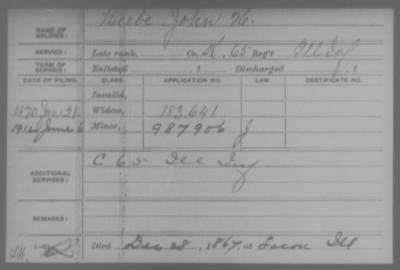 NAME OF SOLDIER: Beebe, John H.
SERVICE: Late rank, Co. K, 65 Reg't Ill Inf
TERM OF SERVICE: Enlisted , 1 Discharged , 1
DATE OF FILING. CLASS. APPLICATION NO. LAW. CERTIFICATE NO.
Invalid,
1870 Jan 21. Widow, 183.641
1912 June 6 Minor, 987906 J
ADDITIONAL SERVICES: C 65 Ill Inf
REMARKS:
Died Dec 28, 1867, at Lacon Ill